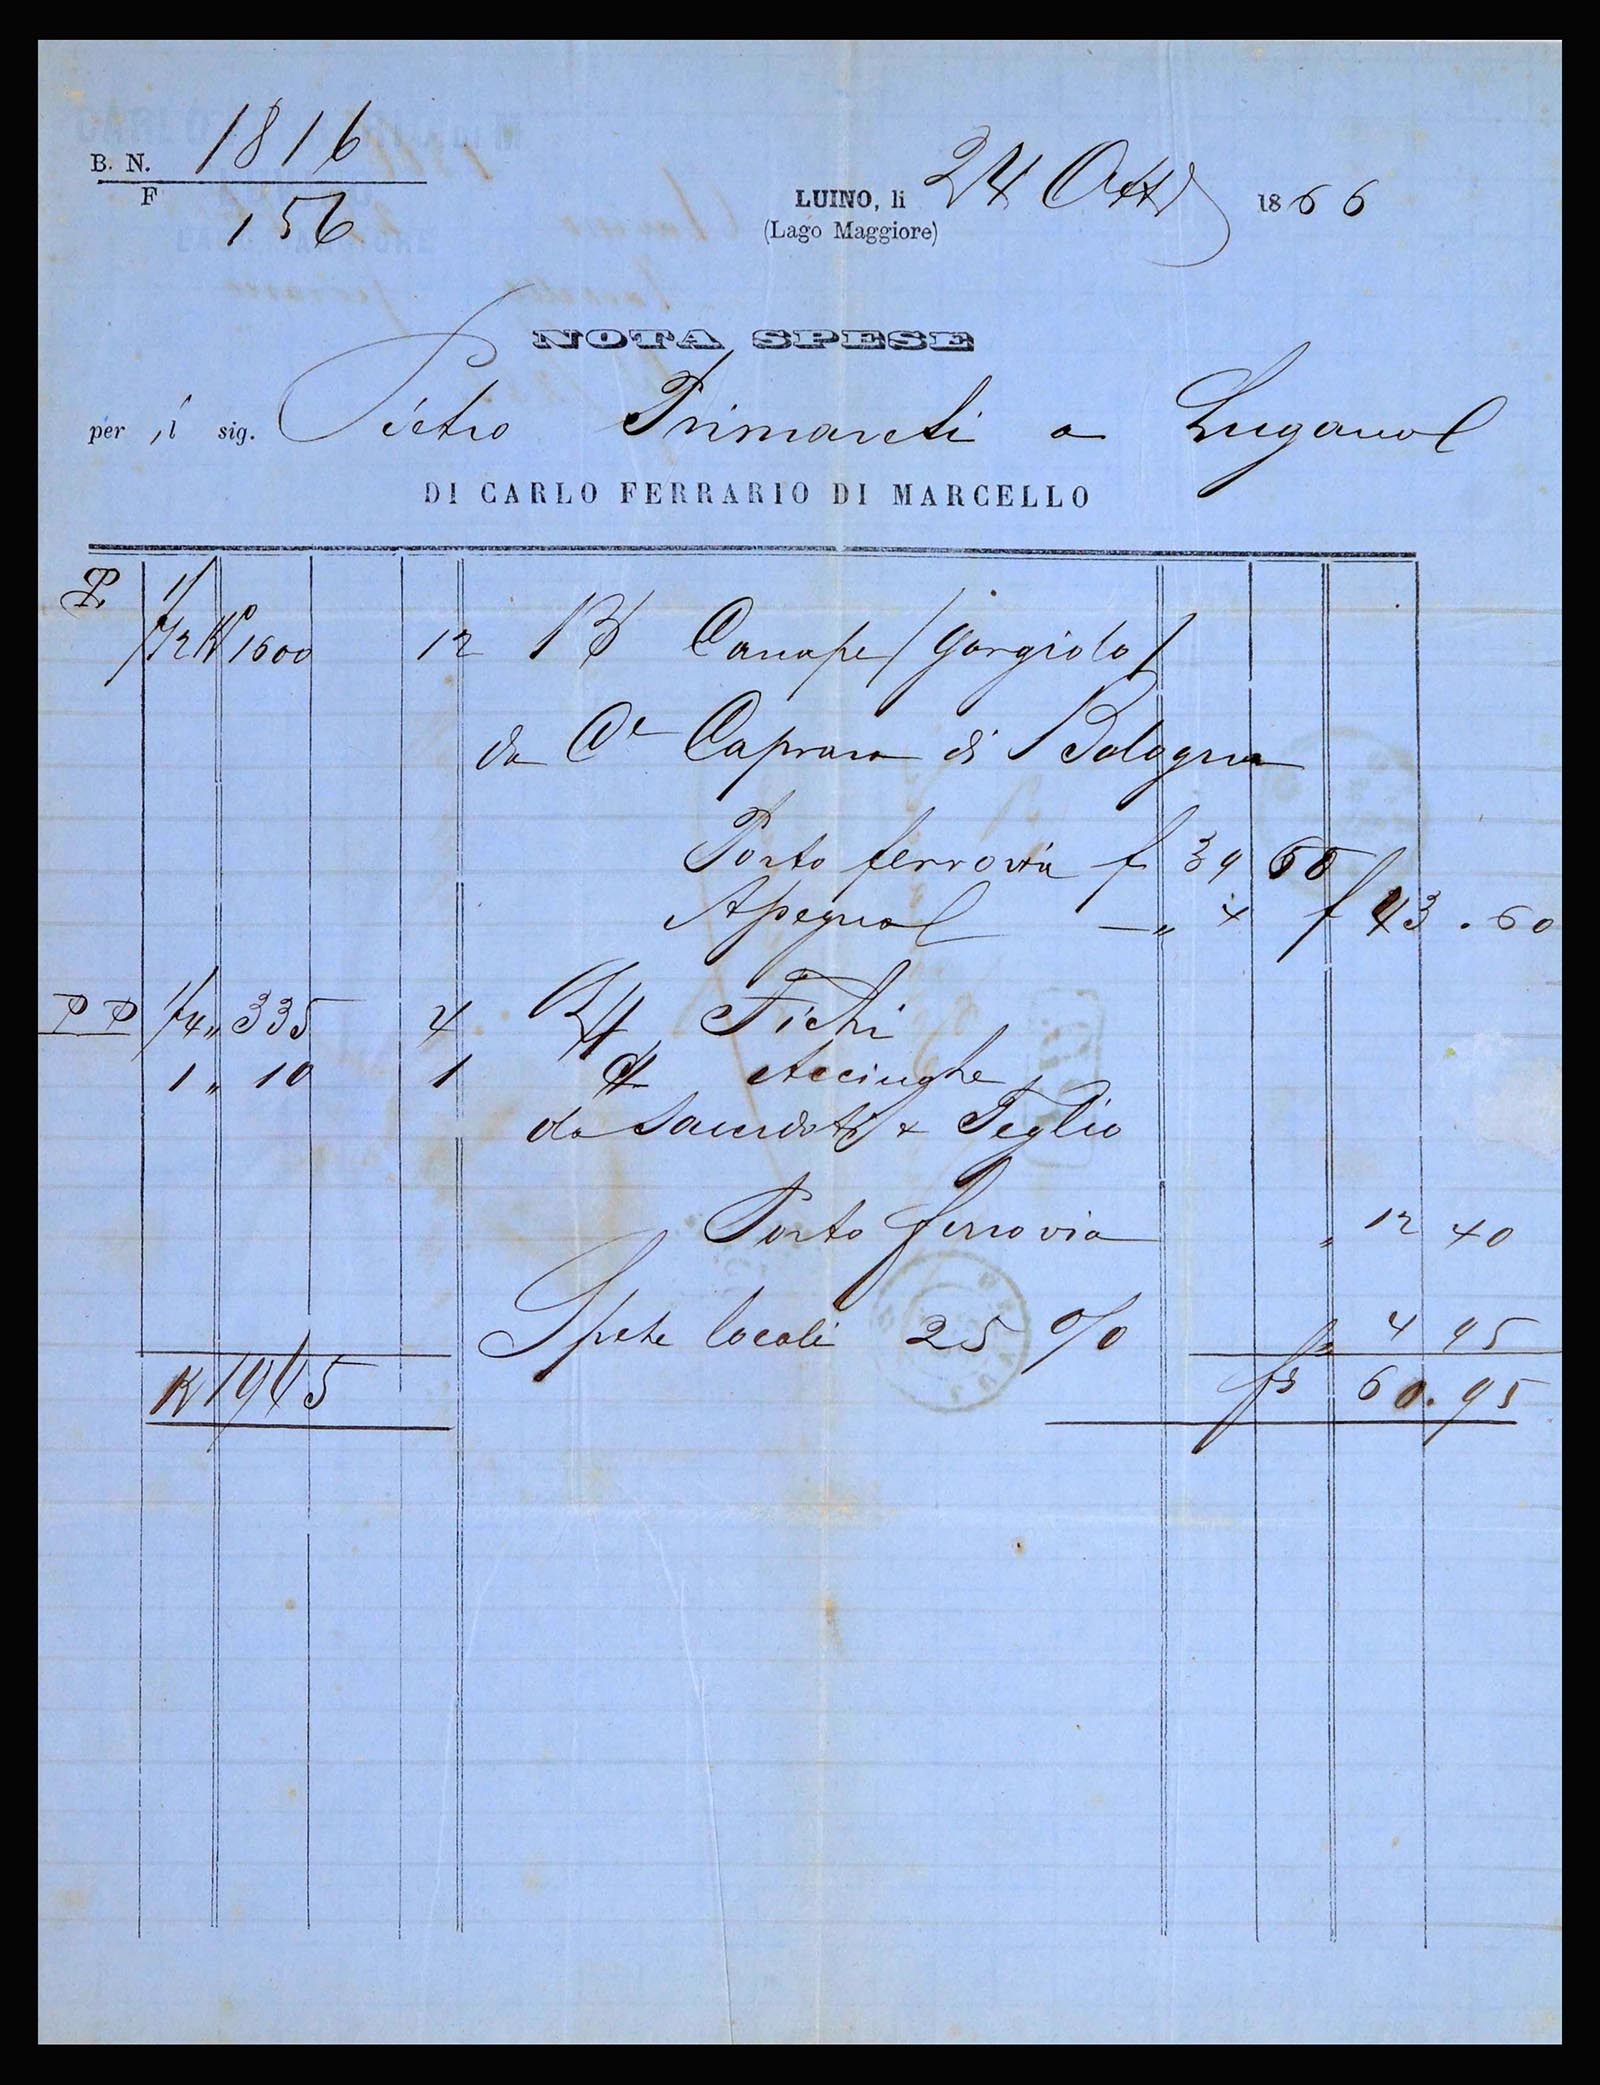 B. N. 1816
F 156
LUINO, li 24 Ottb 1866
(Lago Maggiore)
NOTA SPESE
per il sig. Pietro Primaveti a Lugano
DI CARLO FERRARIO DI MARCELLO
P. 1/12 K 1600 12 B Canape (Gargiolo)
da Caprara di Bologna
Porto ferrovia f 39 60
Apegno — „ 4 f 43 . 60
PP 1/4 „ 335 4 Fichi
1 „ 10 1 Acciughe
da Sacerdoti & Teglio
Porto ferrovia „ 12 40
Spese locali 25 % „ 4 95
K 1945 fs 60.95